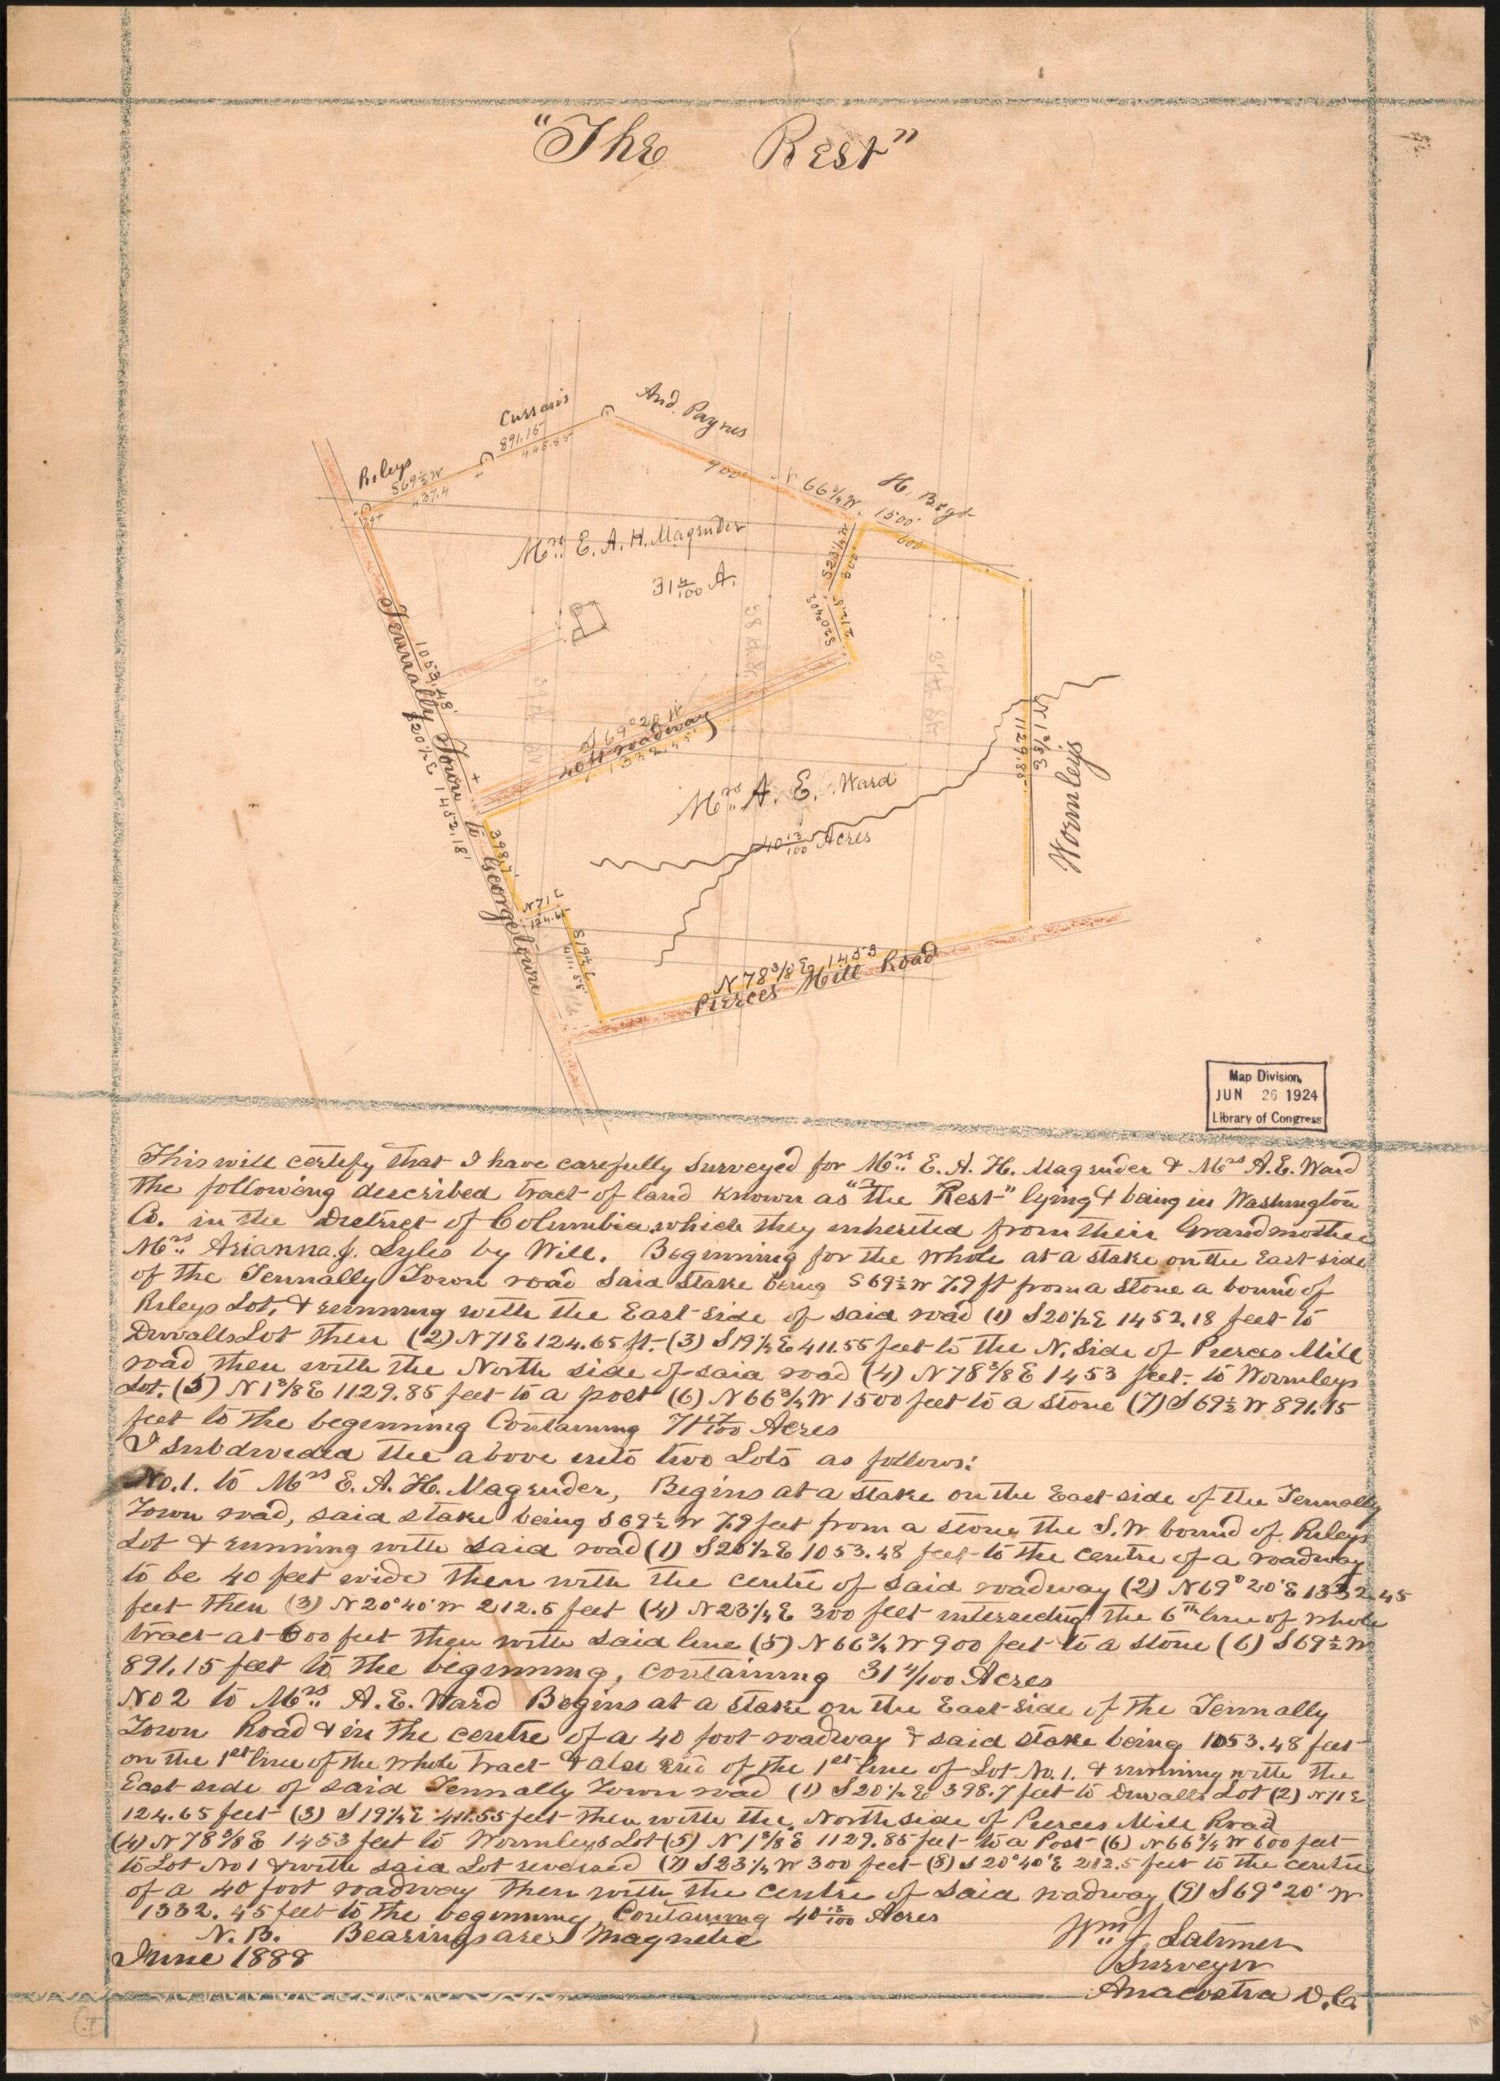 "The Rest"
And. Paynes
Cussons
891.15
445.85
Rileys
S69½W
437.4
79+
900
N 66¾ W.
1500
H. Bregt
600
Mrs. E. A. H. Magruder
31 4/100 A.
S23¼W
300
S20°40E
212.5
Tennally Town to Georgetown
1053.48'
S20½E 1452.18'
S69°20 W
40 ft roadway
1332.45'
Mrs. A. E. Ward
40 13/100 Acres
N 1⅜ E
1129.85
Wormley's
398.7'
N71E
124.65
S19¼E
411.55'
N 78⅜ E 1453
Pierces Mill Road
Map Division,
JUN 26 1924
Library of Congress
This will certify that I have carefully surveyed for Mrs. E. A. H. Magruder & Mrs A. E. Ward
the following described tract of land known as "The Rest" lying & being in Washington
Co. in the District of Columbia which they inherited from their Grandmother
Mrs. Arianna J. Lyles by Will. Beginning for the whole at a stake on the East side
of the Tennally Town road said stake being S69½W 7.9 ft from a stone a bound of
Rileys Lot, & running with the East side of said road (1) S20½E 1452.18 feet to
Duvalls Lot then (2) N71E 124.65 ft. (3) S19¼E 411.55 feet to the N. side of Pierces Mill
road then with the North side of said road (4) N78⅜E 1453 feet to Wormleys
Lot. (5) N1⅜E 1129.85 feet to a post (6) N66¾W 1500 feet to a stone (7) S69½W 891.15
feet to the beginning Containing 71 17/100 Acres
I subdivided the above into two Lots as follows:
No. 1. to Mrs E. A. H. Magruder, Begins at a stake on the East side of the Tennally
Town road, said stake being S69½W 7.9 feet from a stone the S.W. bound of Rileys
Lot & running with said road (1) S20½E 1053.48 feet to the centre of a roadway
to be 40 feet wide then with the centre of said roadway (2) N69°20'E 1332.45
feet then (3) N20°40'W 212.5 feet (4) N23¼E 300 feet intersecting the 6th line of whole
tract at 600 feet then with said line (5) N66¾W 900 feet to a stone (6) S69½W
891.15 feet to the beginning, containing 31 4/100 Acres
No 2 to Mrs. A. E. Ward Begins at a stake on the East side of the Tennally
Town Road & in the centre of a 40 foot roadway & said stake being 1053.48 feet
on the 1st line of the whole tract & also end of the 1st line of Lot No. 1. & running with the
East side of said Tennally Town road (1) S20½E 398.7 feet to Duvalls Lot (2) N71E
124.65 feet (3) S19¼E 411.55 feet then with the North side of Pierces Mill Road
(4) N78⅜E 1453 feet to Wormleys Lot (5) N1⅜E 1129.85 feet to a Post (6) N66¾W 600 feet
to Lot No 1 & with said Lot reversed (7) S23¼W 300 feet (8) S20°40'E 212.5 feet to the centre
of a 40 foot roadway then with the centre of said roadway (9) S69°20' W
1332.45 feet to the beginning Containing 40 13/100 Acres
N. B. Bearings are Magnetic
June 1888
Wm. J. Latimer
Surveyor
Anacostia D.C.